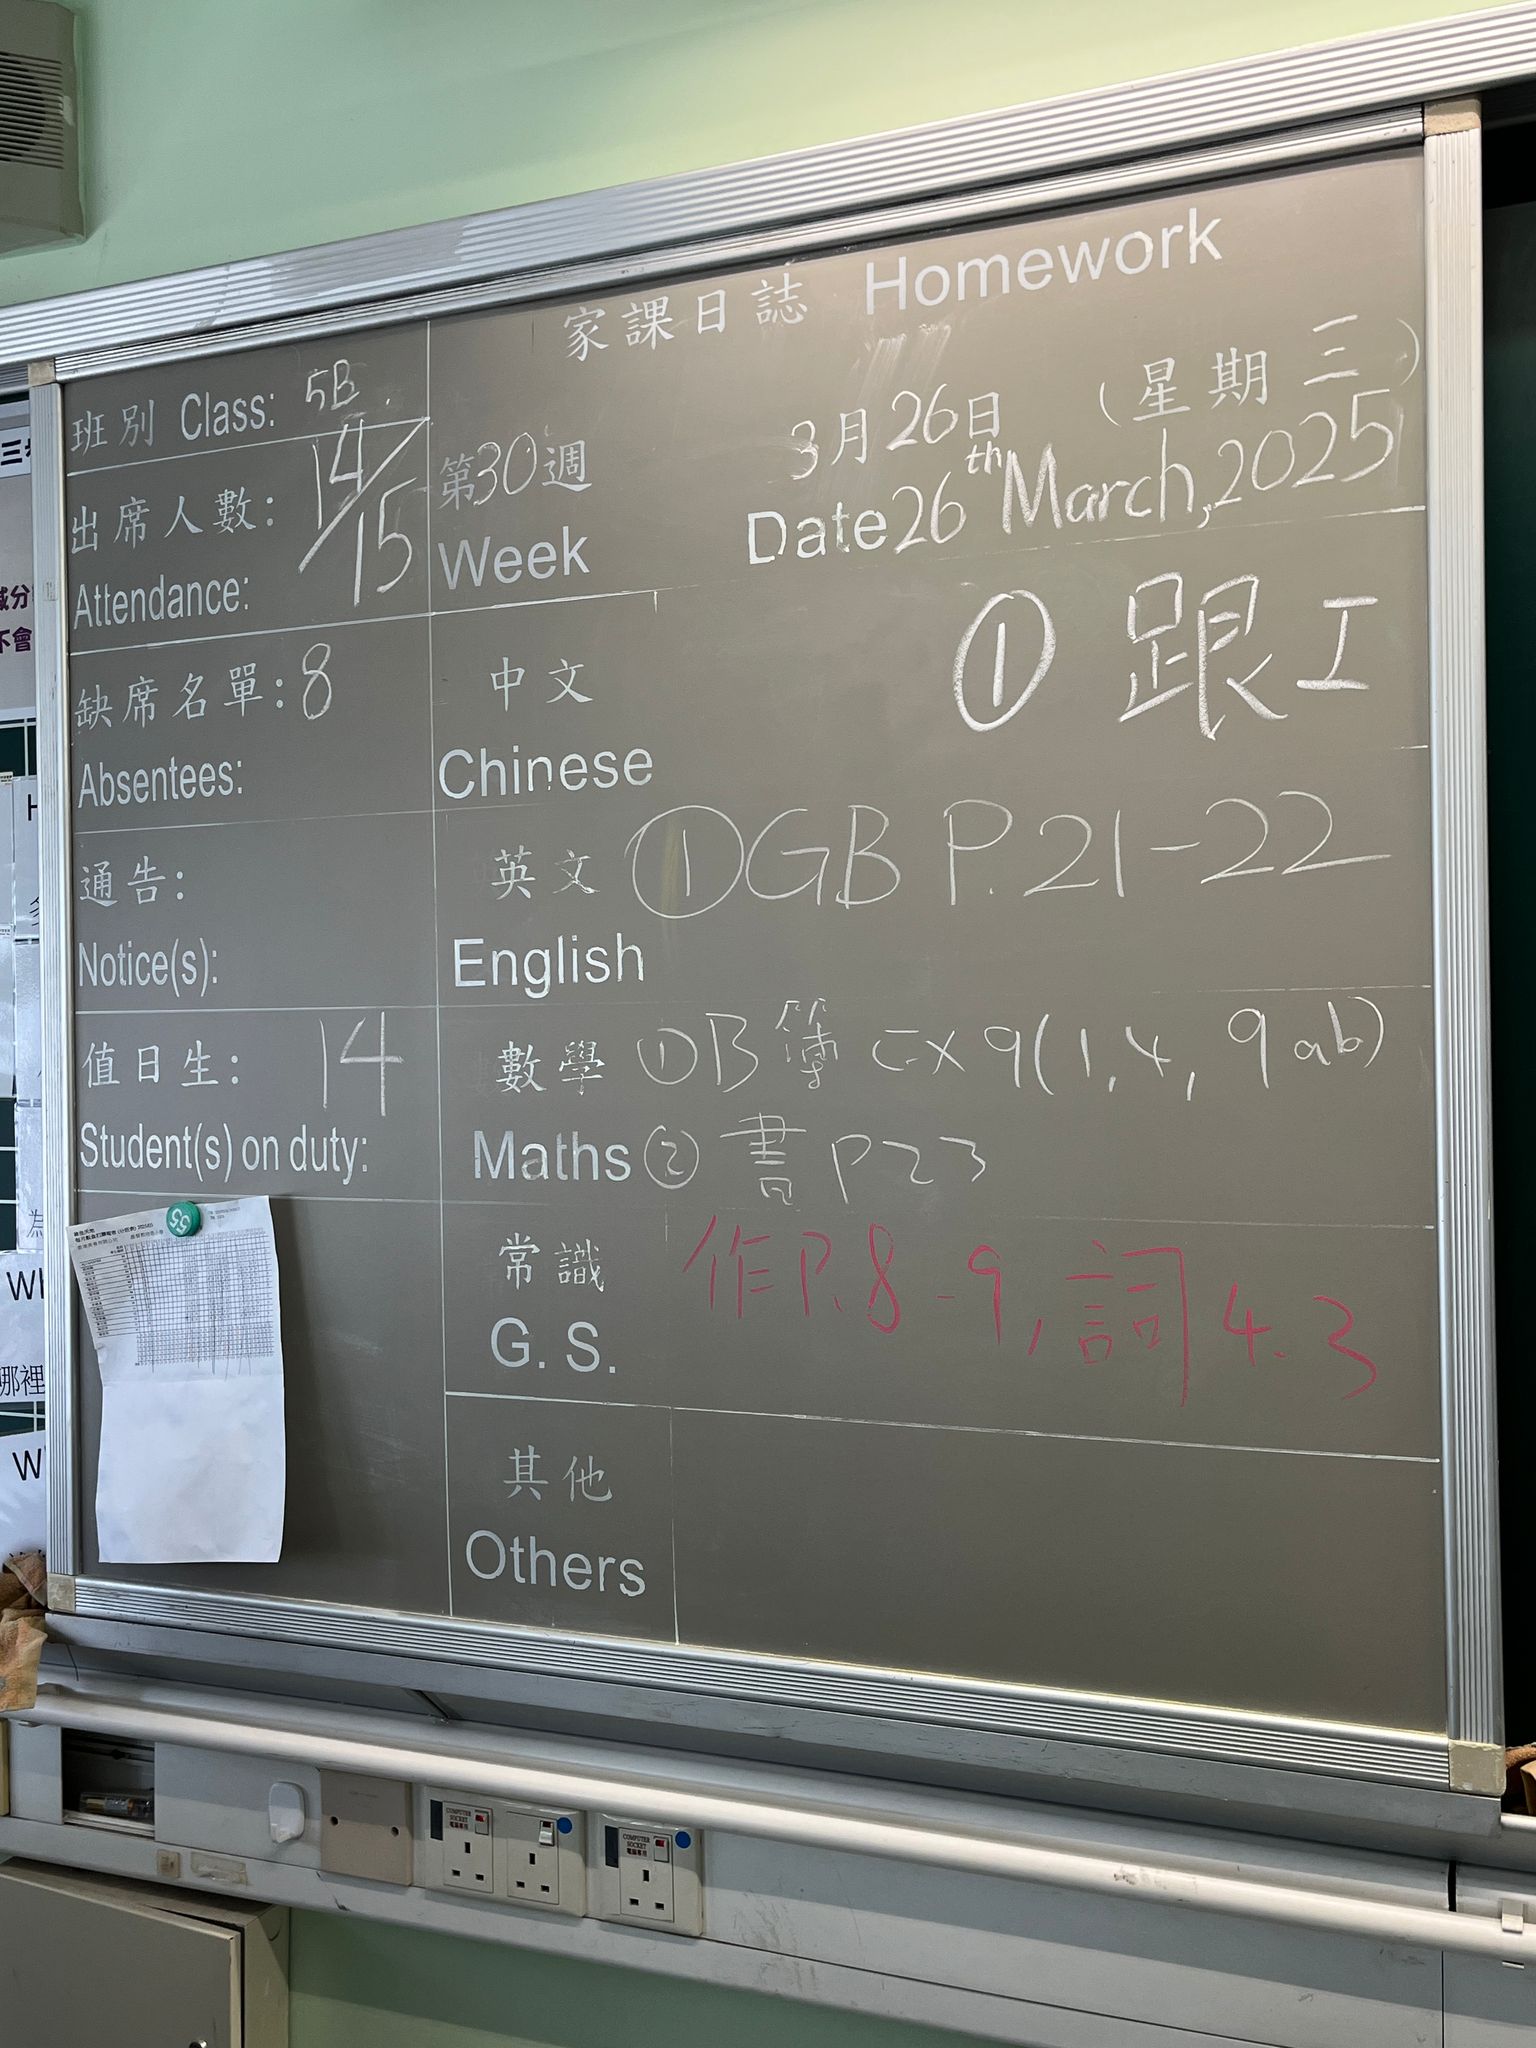 家課日誌 Homework
班別 Class: 5B
出席人數: 14/15
Attendance:
第30週
Week
3月26日 (星期三)
Date 26th March, 2025
缺席名單: 8
Absentees:
通告:
Notice(s):
值日生: 14
Student(s) on duty:
中文 ① 跟工
Chinese
英文 ① GB P.21-22
English
數學 ① B簿 Ex 9(1,4, 9ab)
Maths ② 書 P23
常識 作P.8-9, 詞4.3
G. S.
其他
Others
55
COMPUTER SOCKET
電腦專用
COMPUTER SOCKET
電腦專用
不會
為
哪裡
Wh
W